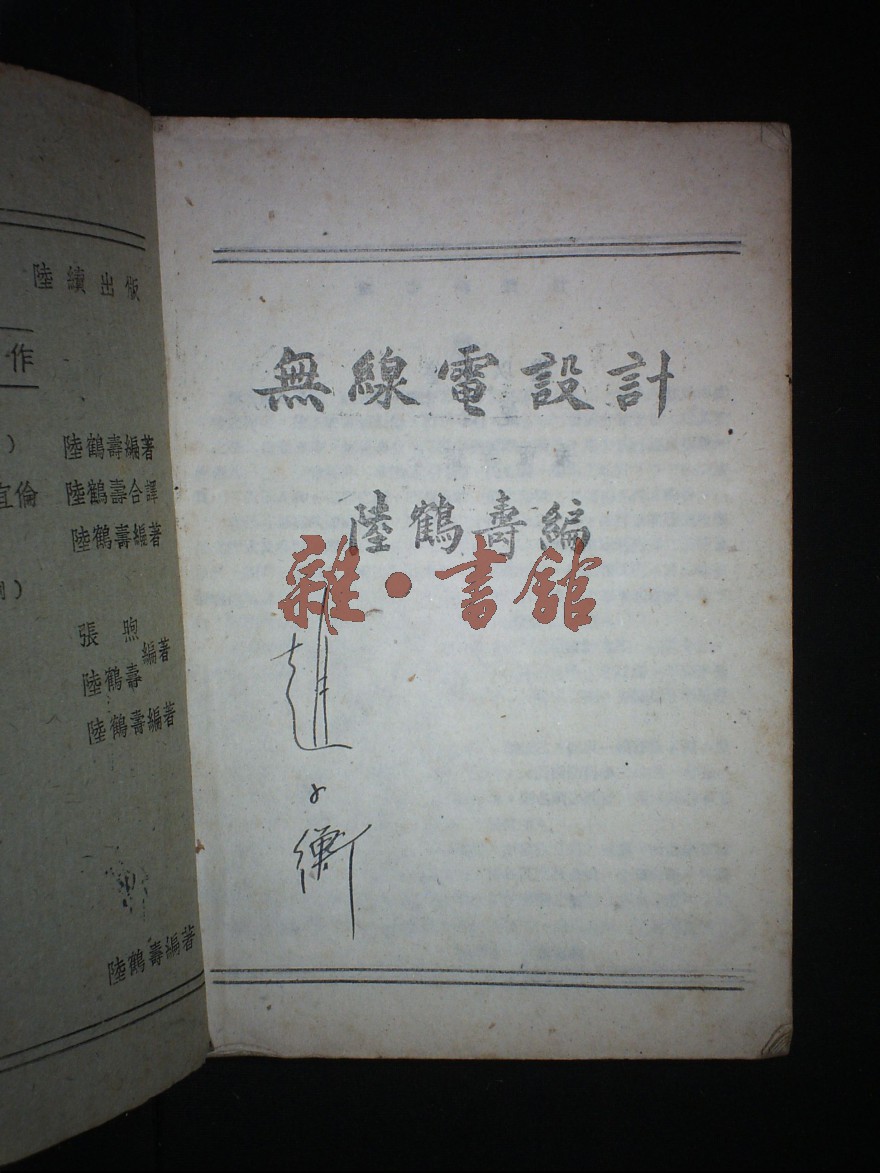 陸續出版
作
) 陸鶴壽編著
宜倫 陸鶴壽合譯
陸鶴壽編著
)
張煦
陸鶴壽 編著
陸鶴壽編著
陸鶴壽編著
無線電設計
陸鶴壽編
雜·書館
趙
衡